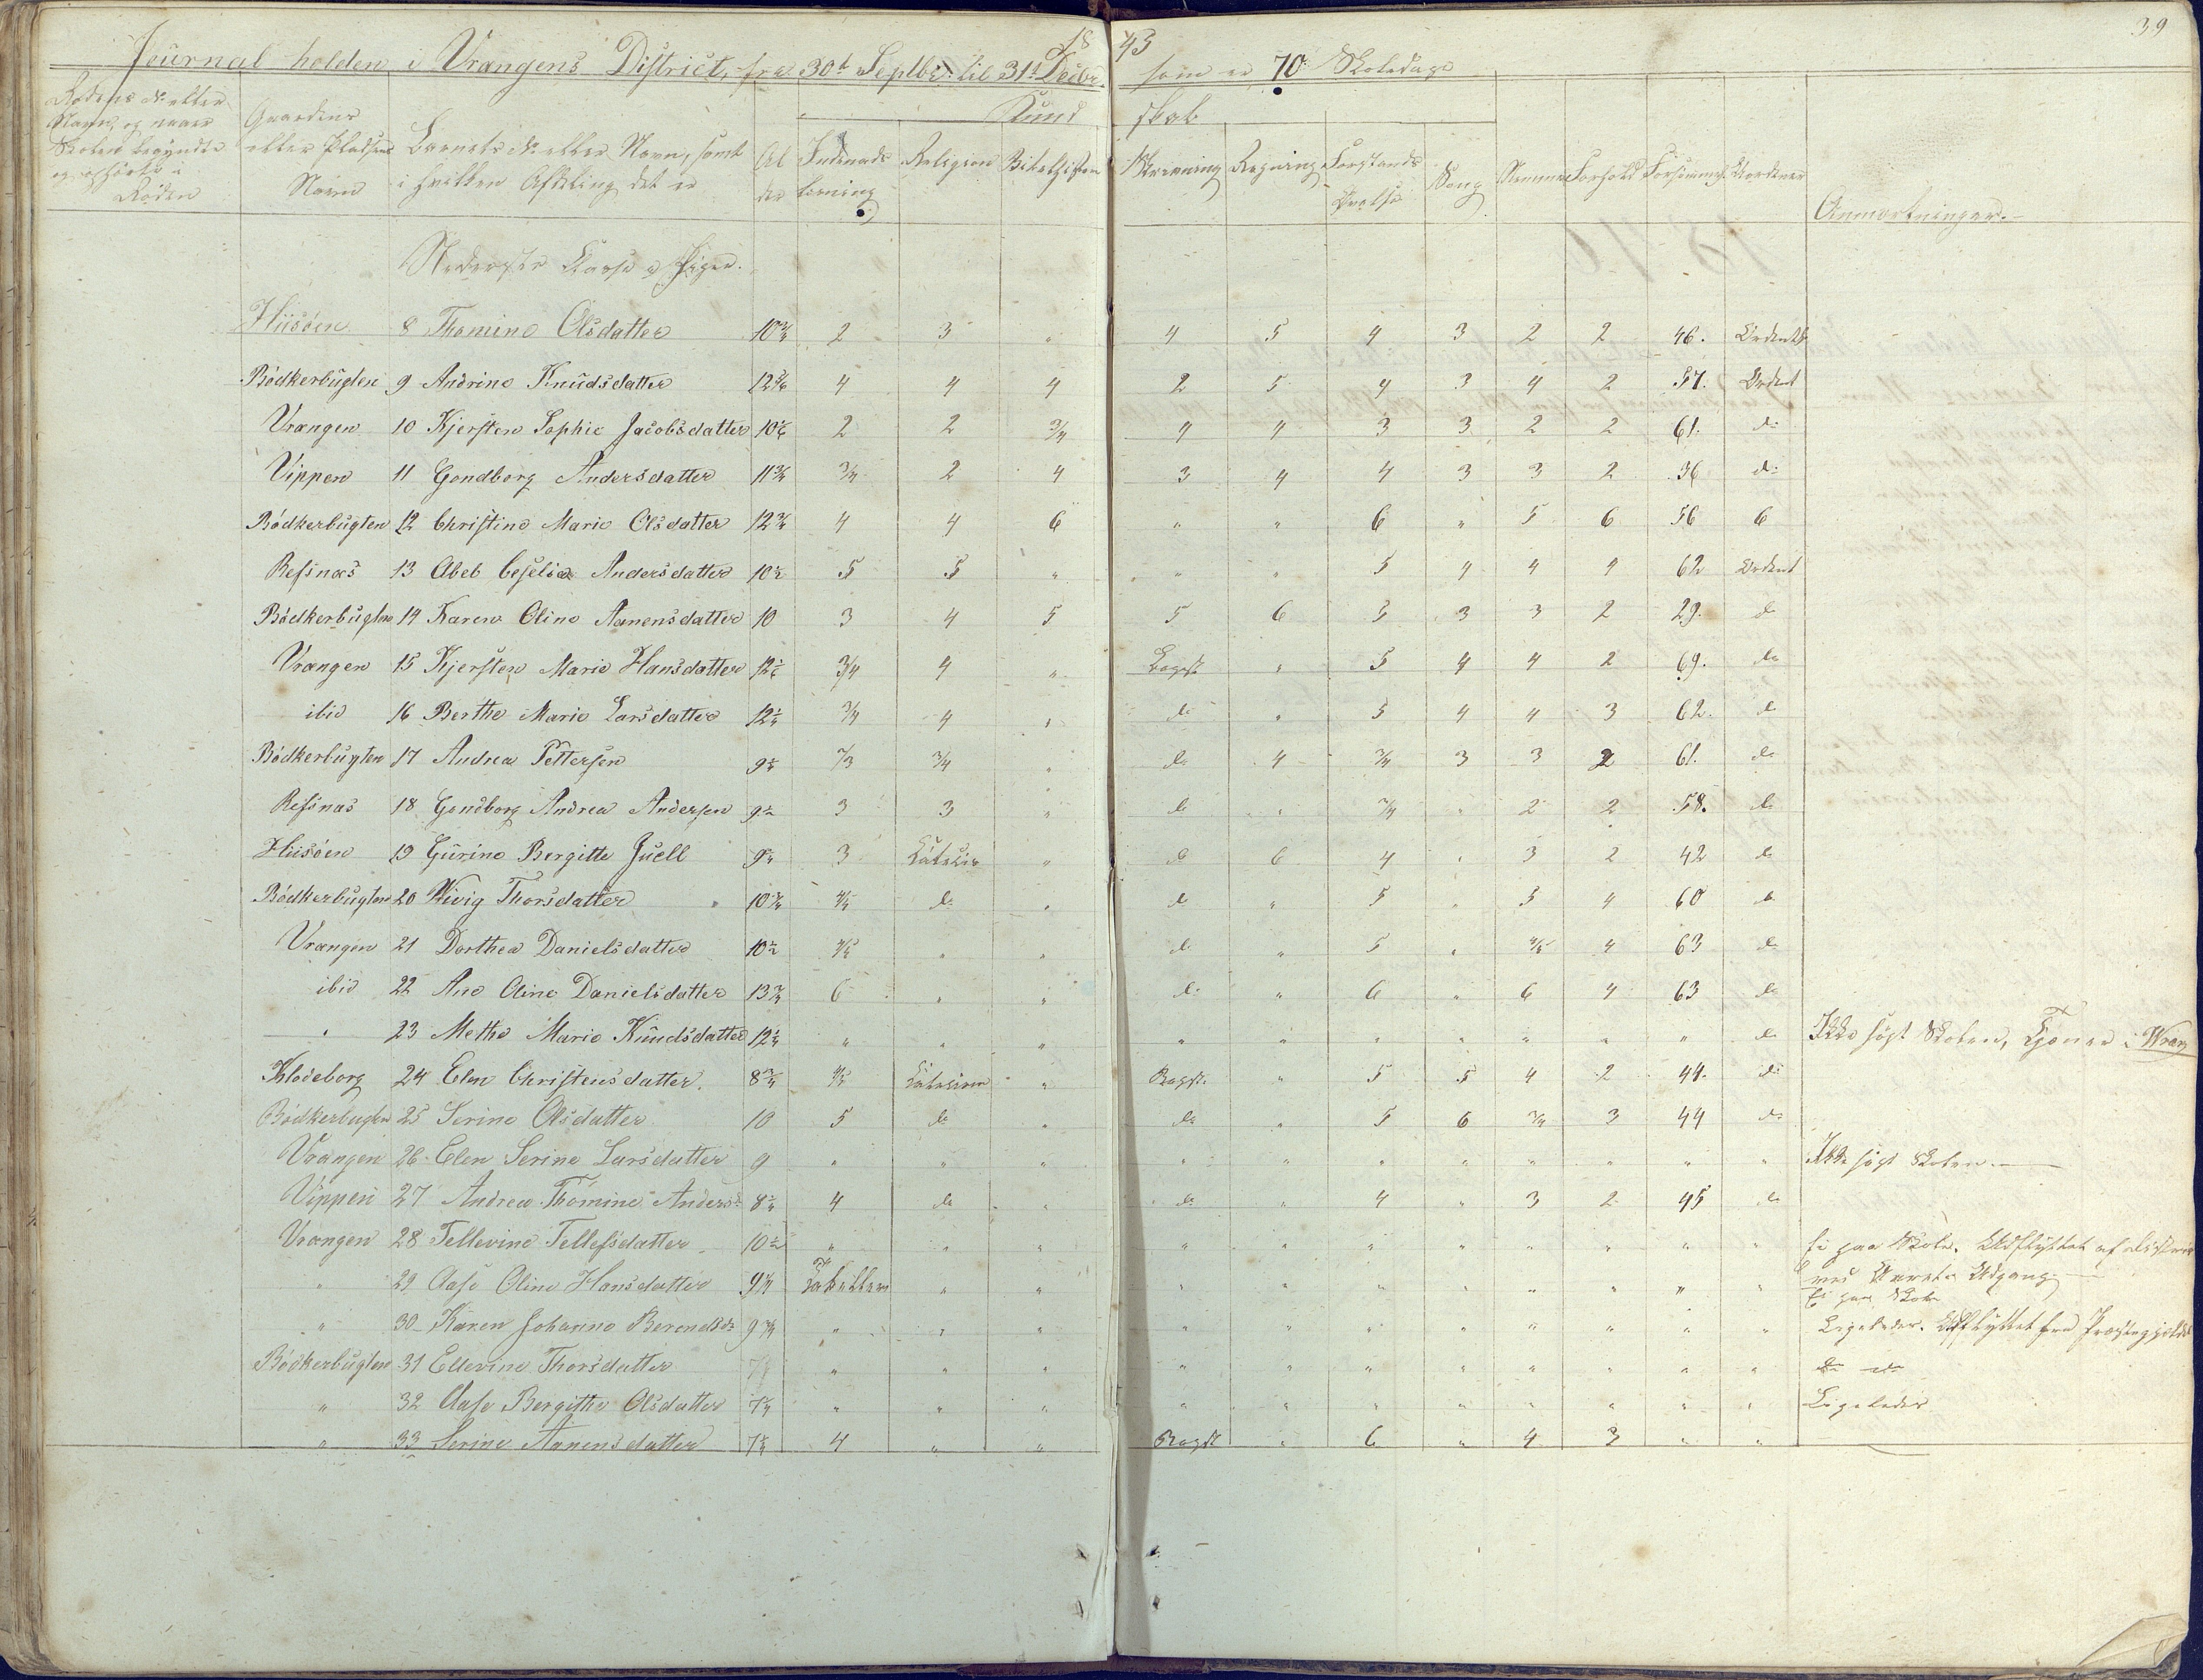 39
Journal holden i Vrangens District, fra 30t Septbr. til 31t Decbr. 1843 som er 70 Skoledage
Rodens No eller Navn, og naar Skolen begyndte og ophörte i Roden
Gaardens eller Pladsens Navn
Barnets No eller Navn, samt i hvilken Afdeling det er
Alder
Kundskab
Indenadslæsning
Religion
Bibelhistorie
Skrivning
Regning
Forstands Øvelse
Sang
Nemme
Forhold
Forsömmelse
Anmærkninger.
Nederste Classe af Piger.
Hiisöen 8 Thomine Olsdatter 10 3/4 2 3 " 4 5 4 3 2 2 46. Ordentl
Bödkerbugten 9 Andrine Knudsdatter 4 4 4 2 5 4 3 4 2 57. Ordent
Vrangen 10 Kjersten Sophie Jacobsdatter 2 2 3/4 4 4 3 3 2 2 61. do
Vippen 11 Gondborg Andersdatter 11 3/4 3/4 2 4 3 4 4 3 3 2 36 do
Bödkerbugten 12 Christine Marie Olsdatter 12 3/4 4 4 6 " " 6 " 5 6 56 6
Refsnæs 13 Abel Ceselia Andersdatter 10 1/2 5 5 " " " 5 4 4 4 62 Ordent
Bödkerbugten 14 Karen Oline Aanensdatter 10 3 4 5 5 6 5 3 3 2 29. do
Vrangen 15 Kjersten Marie Hansdatter 3/4 4 " Bogst. " 5 4 4 2 69. do
ibid 16 Berthe Marie Larsdatter 12 1/4 3/4 4 " do " 5 4 4 3 62. do
Bödkerbugten 17 Andrea Pettersen 3/4 " do 4 3/4 3 3 2 61. do
Refsnæs 18 Gondborg Andrea Andersen 9 1/2 3 3 " do " 3/4 " 2 2 58. do
Hiisöen 19 Gurine Bergitte Juell 3 " do 6 4 " 3 2 42 do
Bödkerbugten 20 Wivig Thorsdatter 10 3/4 4/5 do " do " 5 " 5 4 60 do
Vrangen 21 Dorthea Danielsdatter 10 1/2 4/5 " " do " 5 " 4/5 4 63 do
ibid 22 Ane Oline Danielsdatter 13 3/4 6 " " do " 6 " 6 4 63 do
" 23 Methe Marie Knudsdatter 12 1/4 " " " " " " " " " " do Ikke sögt Skolen, Tjener i Wrang
Klodeborg 24 Elen Christensdatter. 8 3/4 4/5 " Bogst. " 5 5 4 2 44. do
Bödkerbugten 25 Serine Olsdatter 10 5 do " do " 5 6 3/4 3 44 do
Vrangen 26 Elen Serine Larsdatter 9 " " " " " " " " " " " Ikke sögt Skolen.
Vippen 27 Andrea Thomine Andersd. 4 do " do " 4 " 3 2 45 do
Vrangen 28 Tellevine Tellefsdatter 10 1/2 " " " " " " " " " " " Ei paa Skole. Udflyttet af District
" 29 Aase Oline Hansdatter " " " " " " " " " " ved Aarets Udgang
Ei paa Skole
" 30 Karen Johanne Berendsdr 9 3/4 " " " " " " " " " " " Ligeledes. Udflyttet fra Præstegjeldet
Bödkerbugten 31 Ellevine Thorsdatter " " " " " " " " " " " do do
" 32 Aase Bergithe Olsdatter 7 1/4 " " " " " " " " " " " Ligeledes
" 33 Serine Aanensdatter 4 " " Bogst " 6 " 4 3 " "